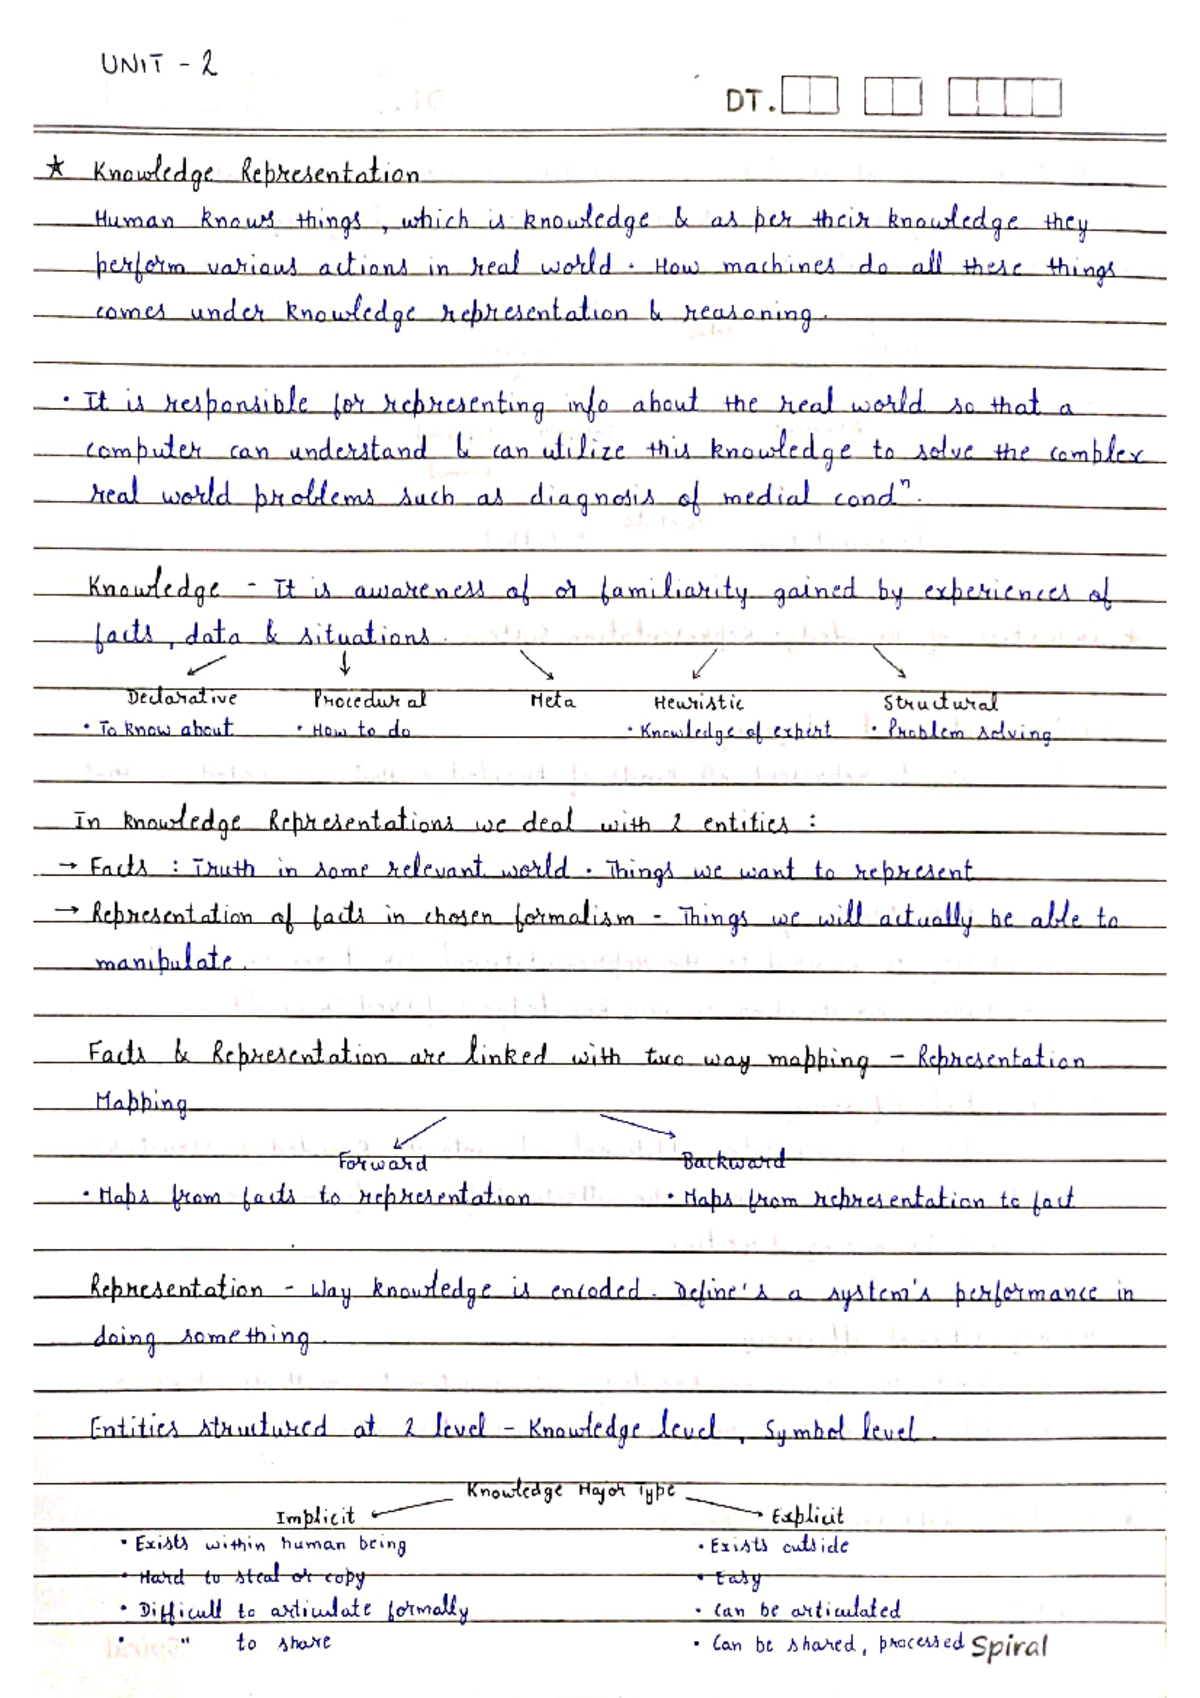 UNIT - 2
DT.
★ Knowledge Representation
Human knows things, which is knowledge & as per their knowledge they
perform various actions in real world. How machines do all these things
comes under knowledge representation & reasoning.
• It is responsible for representing info about the real world so that a
computer can understand & can utilize this knowledge to solve the complex
real world problems such as diagnosis of medial condⁿ.
Knowledge - It is awareness of or familiarity gained by experiences of
facts, data & situations.
Declarative Procedural Meta Heuristic Structural
• To know about • How to do • Knowledge of expert • Problem solving
In knowledge Representations we deal with 2 entities :
→ Facts : Truth in some relevant world. Things we want to represent
→ Representation of facts in chosen formalism - Things we will actually be able to
manipulate.
Facts & Representation are linked with two way mapping - Representation
Mapping
Forward Backward
• Maps from facts to representation • Maps from representation to fact
Representation - Way knowledge is encoded. Define's a system's performance in
doing something.
Entities structured at 2 level - Knowledge level, Symbol level.
Knowledge Major Type
Implicit Explicit
• Exists within human being • Exists outside
• Hard to steal or copy • Easy
• Difficult to articulate formally • Can be articulated
• " to share • Can be shared, processed Spiral